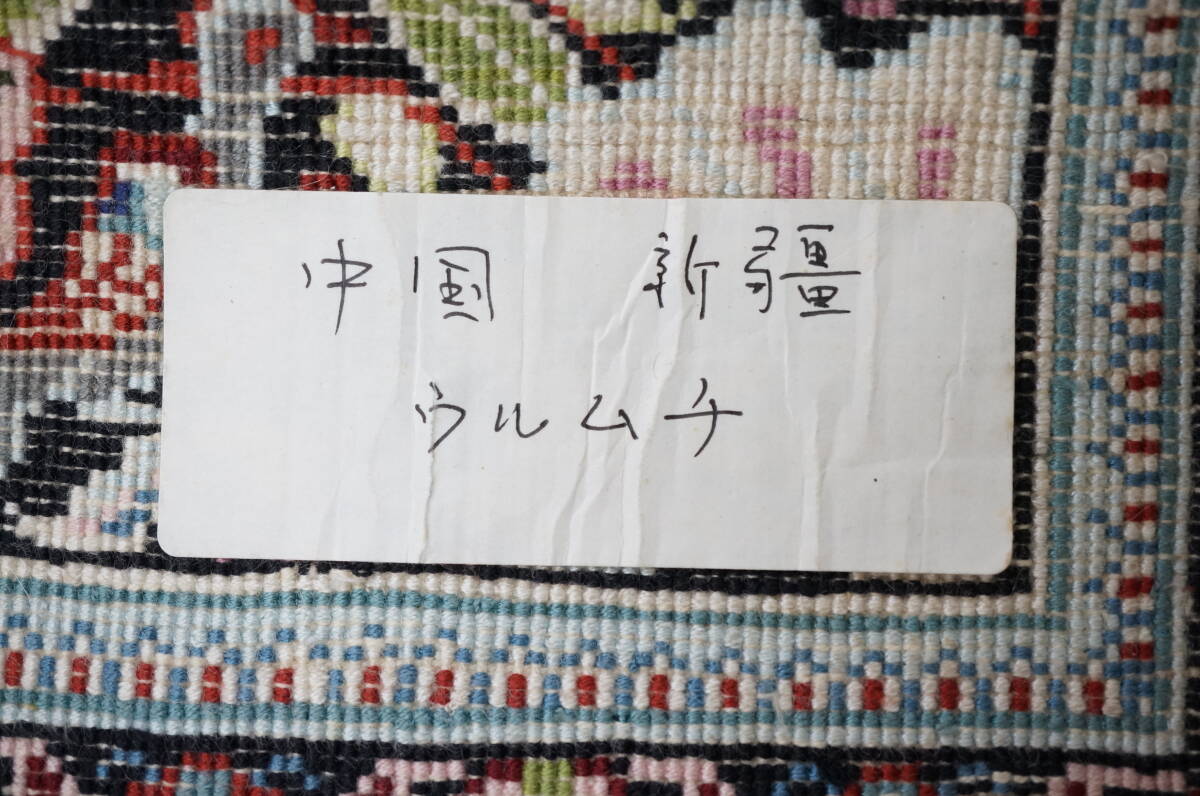 中国 新疆
ウルムチ